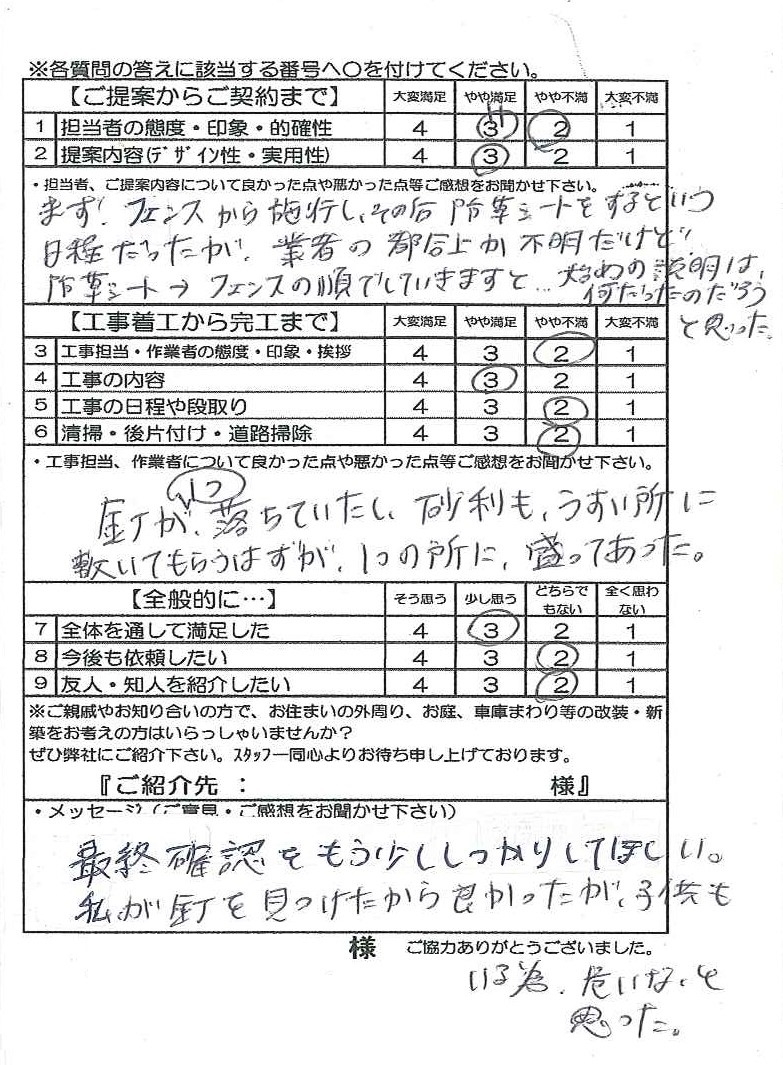 ※各質問の答えに該当する番号へ〇を付けてください。
【ご提案からご契約まで】 大変満足 やや満足 やや不満 大変不満
1 担当者の態度・印象・的確性 4 3 2 1
2 提案内容(ﾃﾞｻﾞｲﾝ性・実用性) 4 3 2 1
・担当者、ご提案内容について良かった点や悪かった点等ご感想をお聞かせ下さい。
まず、フェンスから施行し、その后 防草シートをするという
日程だったが、業者の都合上か不明だけど、
防草シート→フェンスの順でしていきますと… 始めの説明は、
何だったのだろう
と思った。
【工事着工から完工まで】 大変満足 やや満足 やや不満 大変不満
3 工事担当・作業者の態度・印象・挨拶 4 3 2 1
4 工事の内容 4 3 2 1
5 工事の日程や段取り 4 3 2 1
6 清掃・後片付け・道路掃除 4 3 2 1
・工事担当、作業者について良かった点や悪かった点等ご感想をお聞かせ下さい。
1つ
釘が、落ちていたし、砂利も、うすい所に
敷いてもらうはずが、1つの所に、盛ってあった。
【全般的に…】 そう思う 少し思う どちらでもない 全く思わない
7 全体を通して満足した 4 3 2 1
8 今後も依頼したい 4 3 2 1
9 友人・知人を紹介したい 4 3 2 1
※ご親戚やお知り合いの方で、お住まいの外周り、お庭、車庫まわり等の改装・新
築をお考えの方はいらっしゃいませんか？
ぜひ弊社にご紹介下さい。ｽﾀｯﾌ一同心よりお待ち申し上げております。
『ご紹介先： 様』
・メッセージ（ご意見・ご感想をお聞かせ下さい）
最終確認をもう少ししっかりしてほしい。
私が釘を見つけたから良かったが、子供も
様 ご協力ありがとうございました。
いる為、危いなぁと
思った。